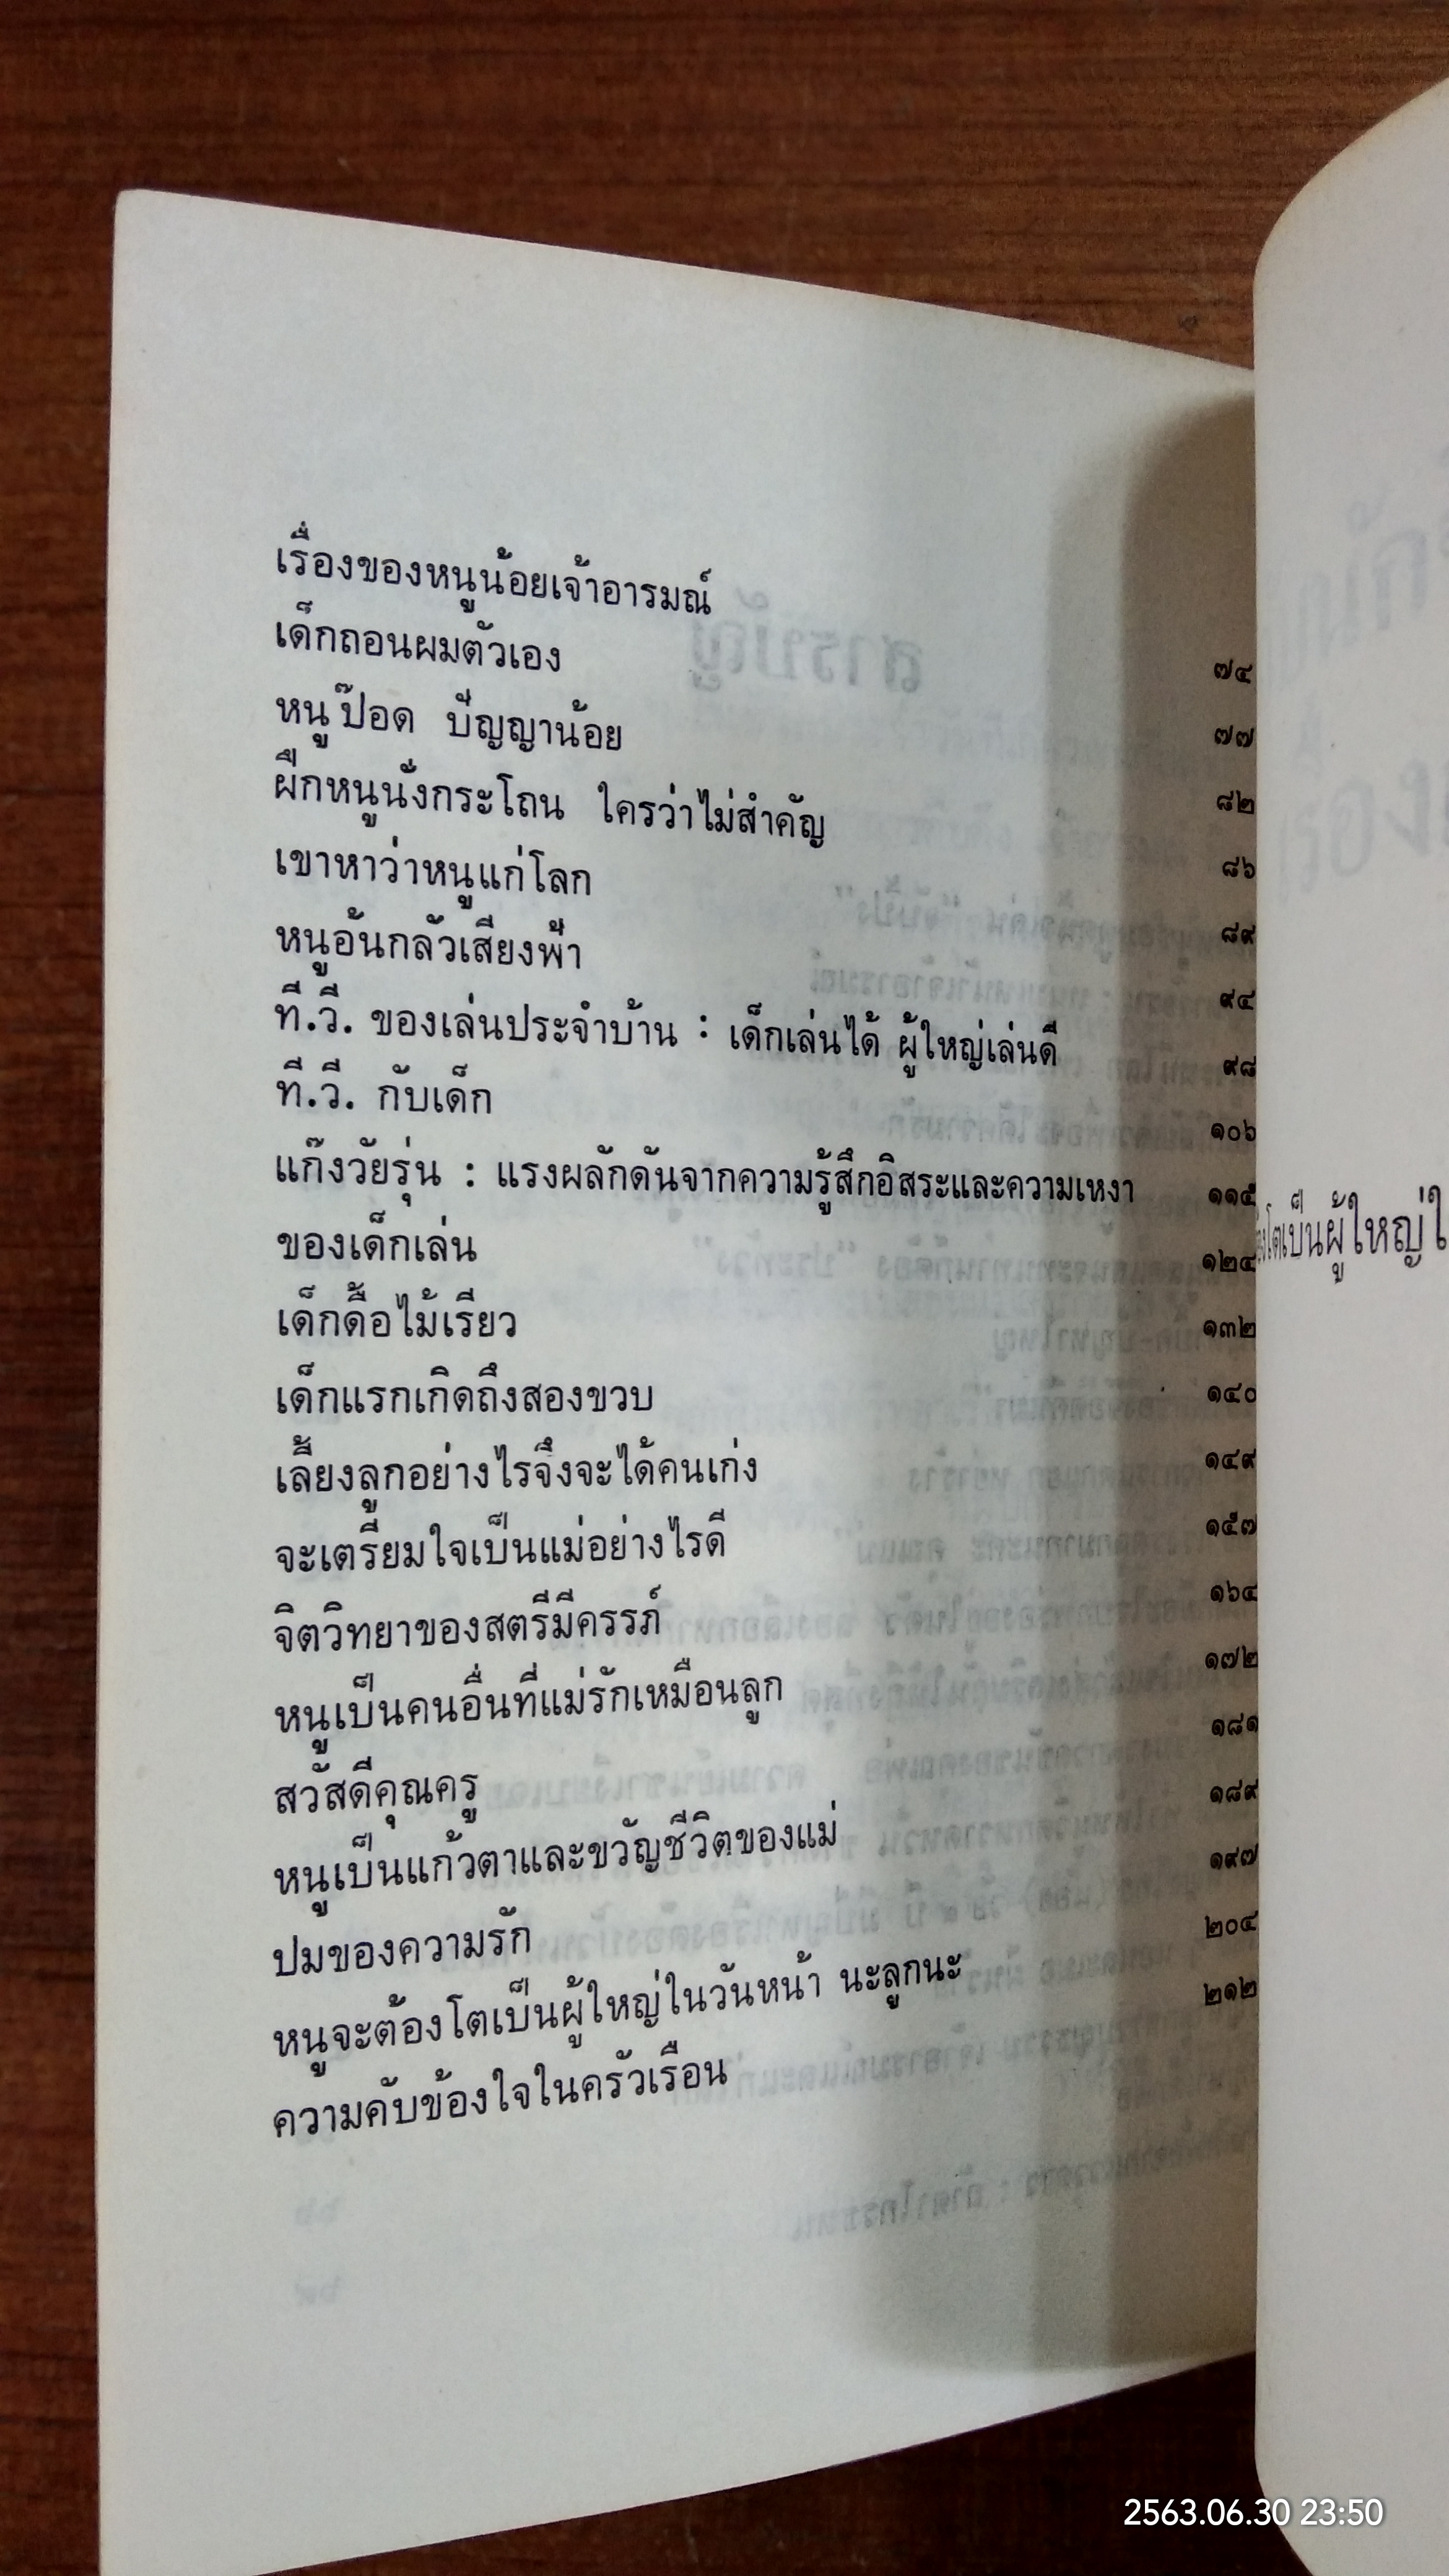 เรื่องของหนูน้อยเจ้าอารมณ์ ๗๔
เด็กถอนผมตัวเอง ๗๗
หนูป๊อด ปัญญาน้อย ๘๒
ฝึกหนูนั่งกระโถน ใครว่าไม่สำคัญ ๘๖
เขาหาว่าหนูแก่โลก ๘๙
หนูอ้นกลัวเสียงฟ้า ๙๔
ที.วี. ของเล่นประจำบ้าน : เด็กเล่นได้ ผู้ใหญ่เล่นดี ๙๘
ที.วี. กับเด็ก ๑๐๖
แก๊งวัยรุ่น : แรงผลักดันจากความรู้สึกอิสระและความเหงา ๑๑๕
ของเด็กเล่น ๑๒๔
เด็กดื้อไม้เรียว ๑๓๒
เด็กแรกเกิดถึงสองขวบ ๑๔๐
เลี้ยงลูกอย่างไรจึงจะได้คนเก่ง ๑๔๙
จะเตรียมใจเป็นแม่อย่างไรดี ๑๕๗
จิตวิทยาของสตรีมีครรภ์ ๑๖๔
หนูเป็นคนอื่นที่แม่รักเหมือนลูก ๑๗๒
สวัสดีคุณครู ๑๘๑
หนูเป็นแก้วตาและขวัญชีวิตของแม่ ๑๘๙
ปมของความรัก ๑๙๗
หนูจะต้องโตเป็นผู้ใหญ่ในวันหน้า นะลูกนะ ๒๐๔
ความคับข้องใจในครัวเรือน ๒๑๒
โตเป็นผู้ใหญ่ใ
2563.06.30 23:50